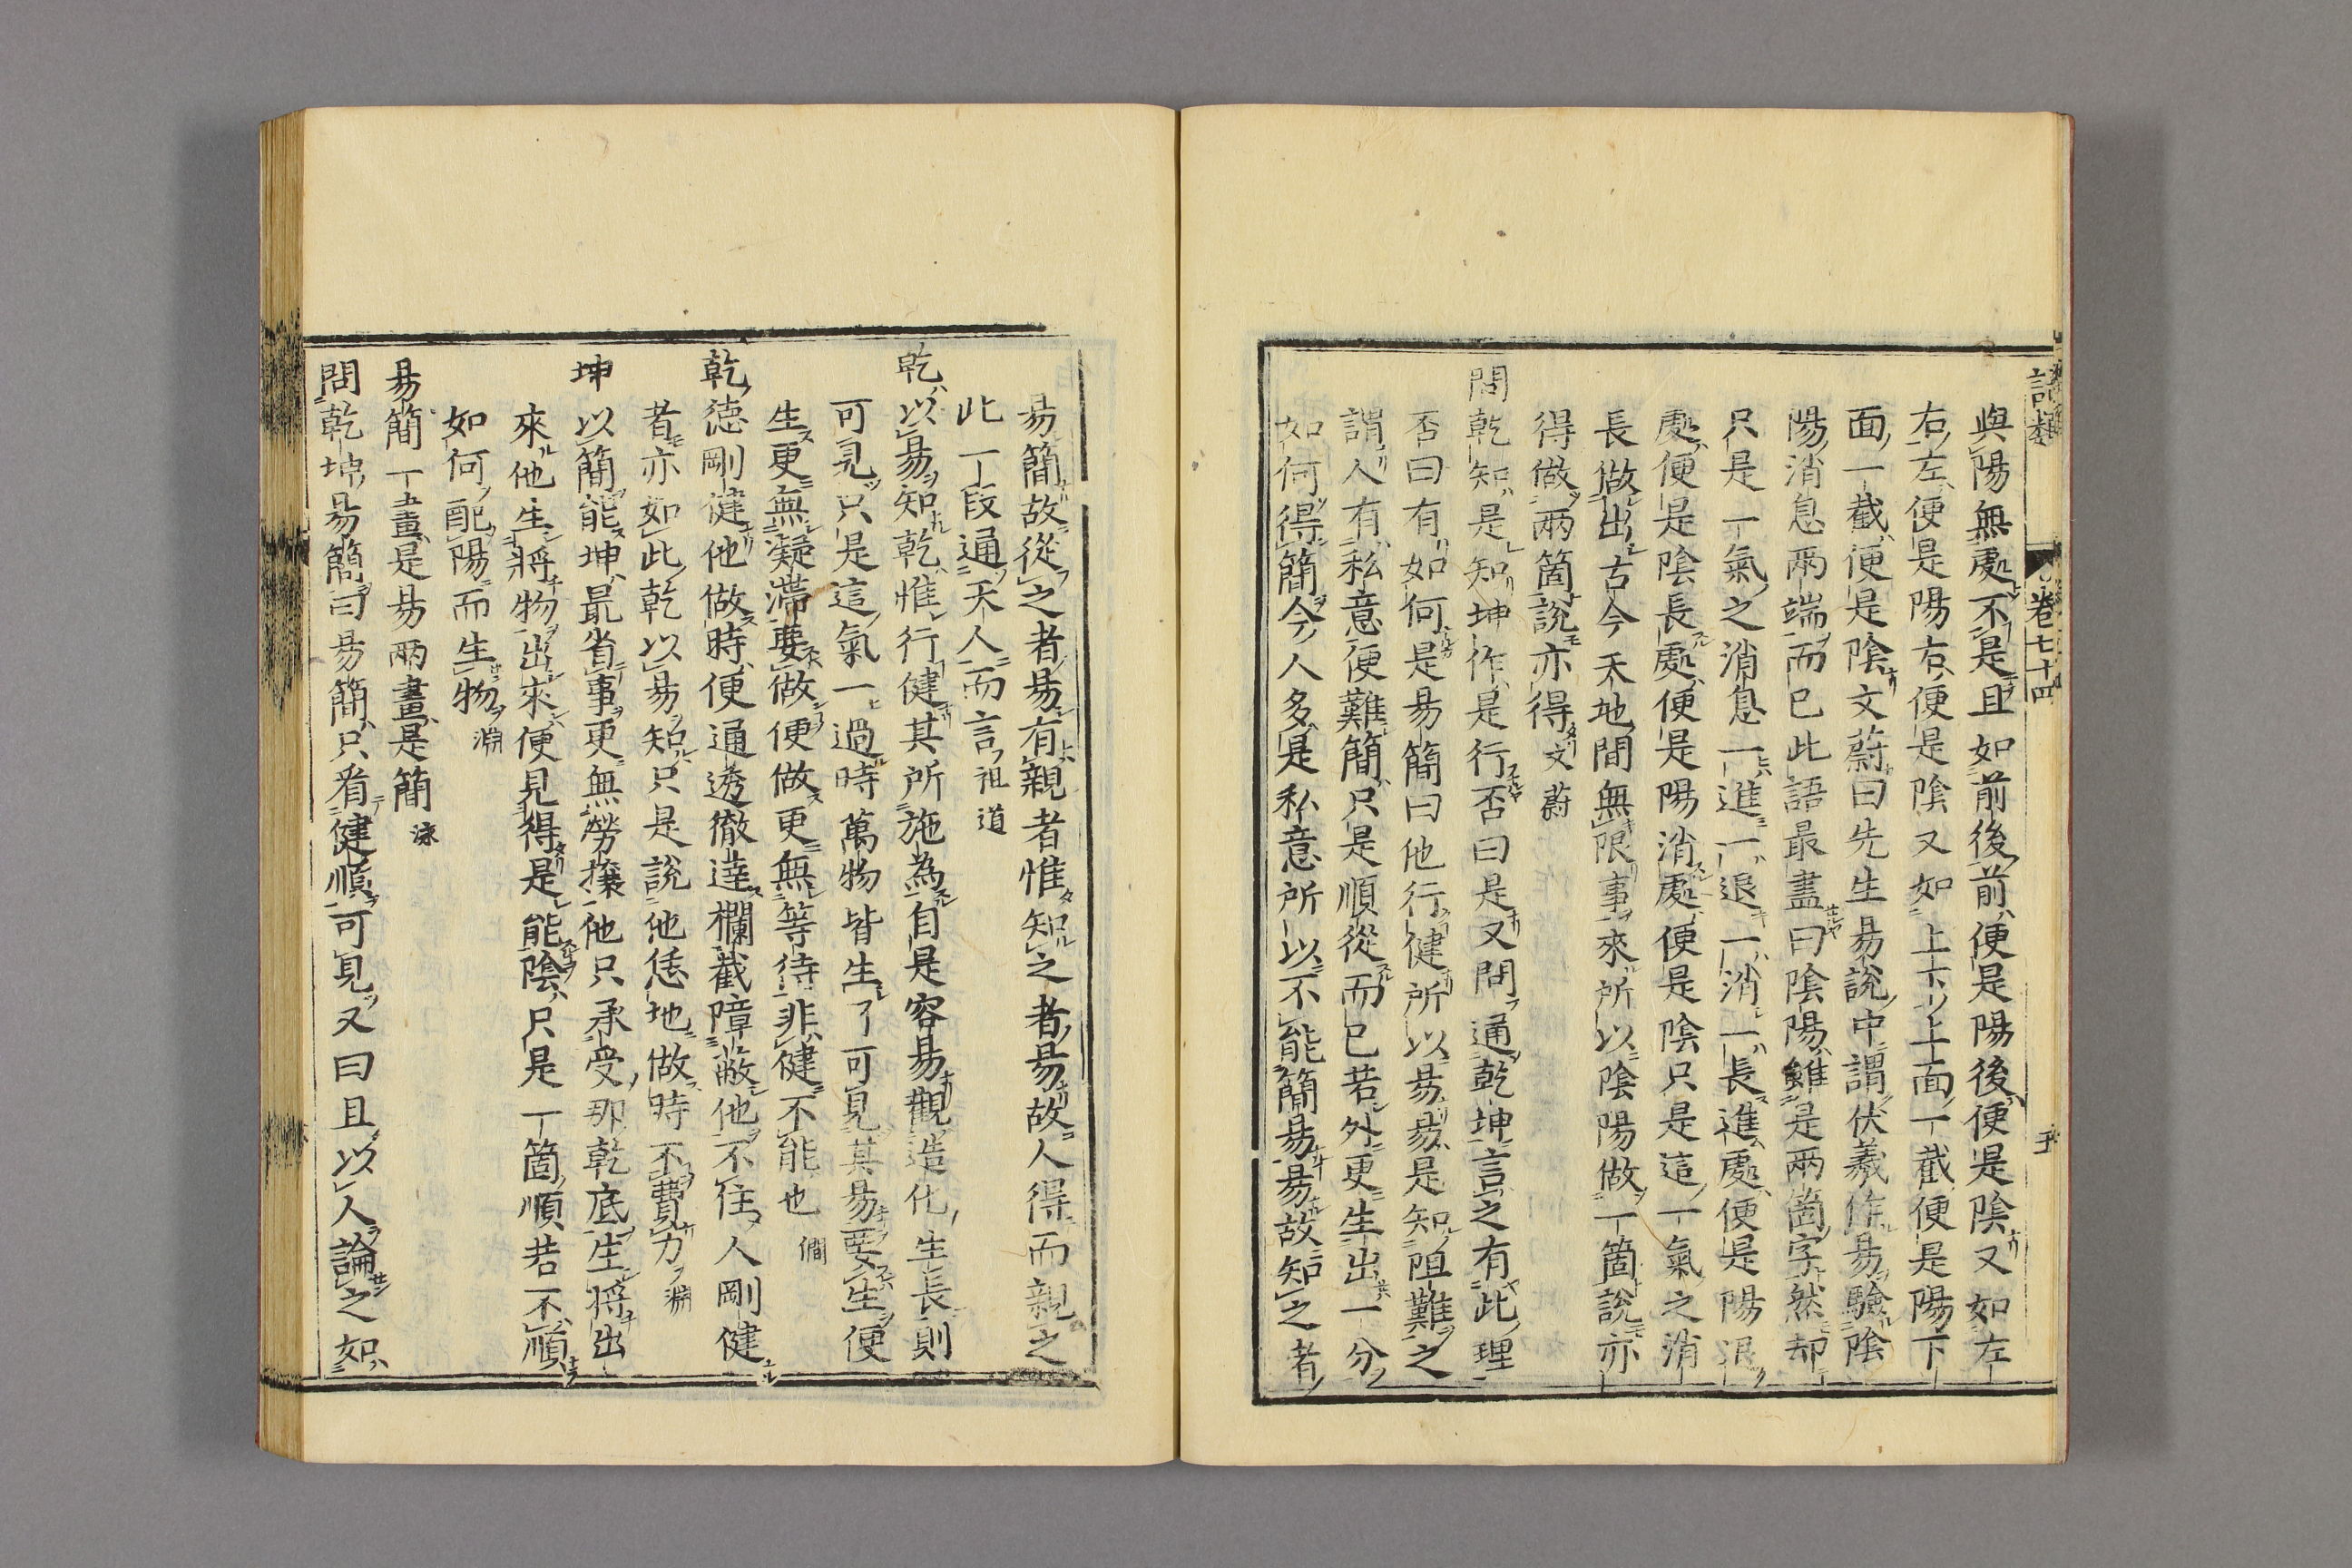 語類　卷七十四　五
與陽無處不是且如前後前便是陽後便是陰又如左
右左便是陽右便是陰又如上下上面一截便是陽下
面一截便是陰文蔚曰先生易說中謂伏羲作易驗陰
陽消息兩端而已此語最盡曰陰陽雖是兩箇字然却
只是一氣之消息一進一退一消一長進處便是陽退
處便是陰長處便是陽消處便是陰只是這一氣之消
長做出古今天地間無限事來所以陰陽做一箇說亦
得做兩箇說亦得文蔚
問乾知是知坤作是行否曰是又問通乾坤言之有此理
否曰有如何是易簡曰他行健所以易易是知阻難之
謂人有私意便難簡只是順從而已若外更生出一分
如何得簡今人多是私意所以不能簡易易故知之者
易簡故從之者易有親者惟知之者易故人得而親之
此一段通天人而言祖道
乾以易知乾惟行健其所施為自是容易觀造化生長則
可見只是這氣一過時萬物皆生了可見其易要生便
生更無凝滯要做便做更無等待非健不能也僩
乾德剛健他做時便通透徹達欄截障蔽他不住人剛健
者亦如此乾以易知只是說他恁地做時不費力淵
坤以簡能坤最省事更無勞攘他只承受那乾底生將出
來他生將物出來便見得是能陰只是一箇順若不順
如何配陽而生物淵
易簡一畫是易兩畫是簡泳
問乾坤易簡曰易簡只看健順可見又曰且以人論之如